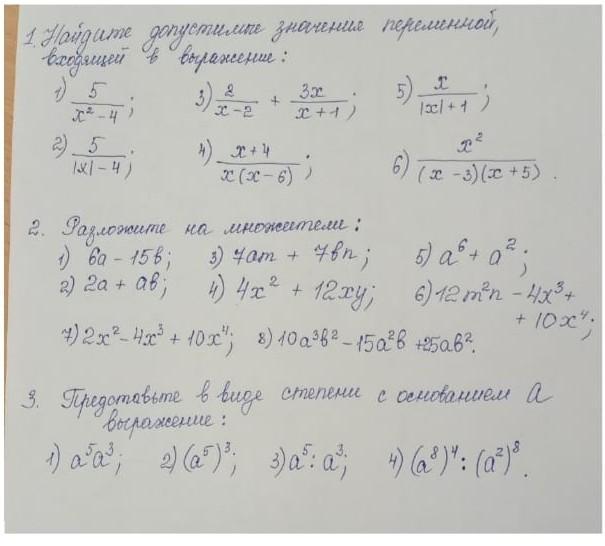 1. Найдите допустимые значения переменной,
входящей в выражение:
1) 5/(x² - 4); 3) 2/(x - 2) + 3x/(x + 1); 5) x/(|x| + 1);
2) 5/(|x| - 4); 4) (x + 4)/(x(x - 6)); 6) x²/((x - 3)(x + 5)).
2. Разложите на множители:
1) 6a - 15b; 3) 7am + 7bn; 5) a⁶ + a²;
2) 2a + ab; 4) 4x² + 12xy; 6) 12m²n - 4x³ +
+ 10x⁴;
7) 2x² - 4x³ + 10x⁴; 8) 10a³b² - 15a²b + 25ab².
3. Представьте в виде степени с основанием a
выражение:
1) a⁵a³; 2) (a⁵)³; 3) a⁵ : a³; 4) (a⁸)⁴ : (a²)⁸.